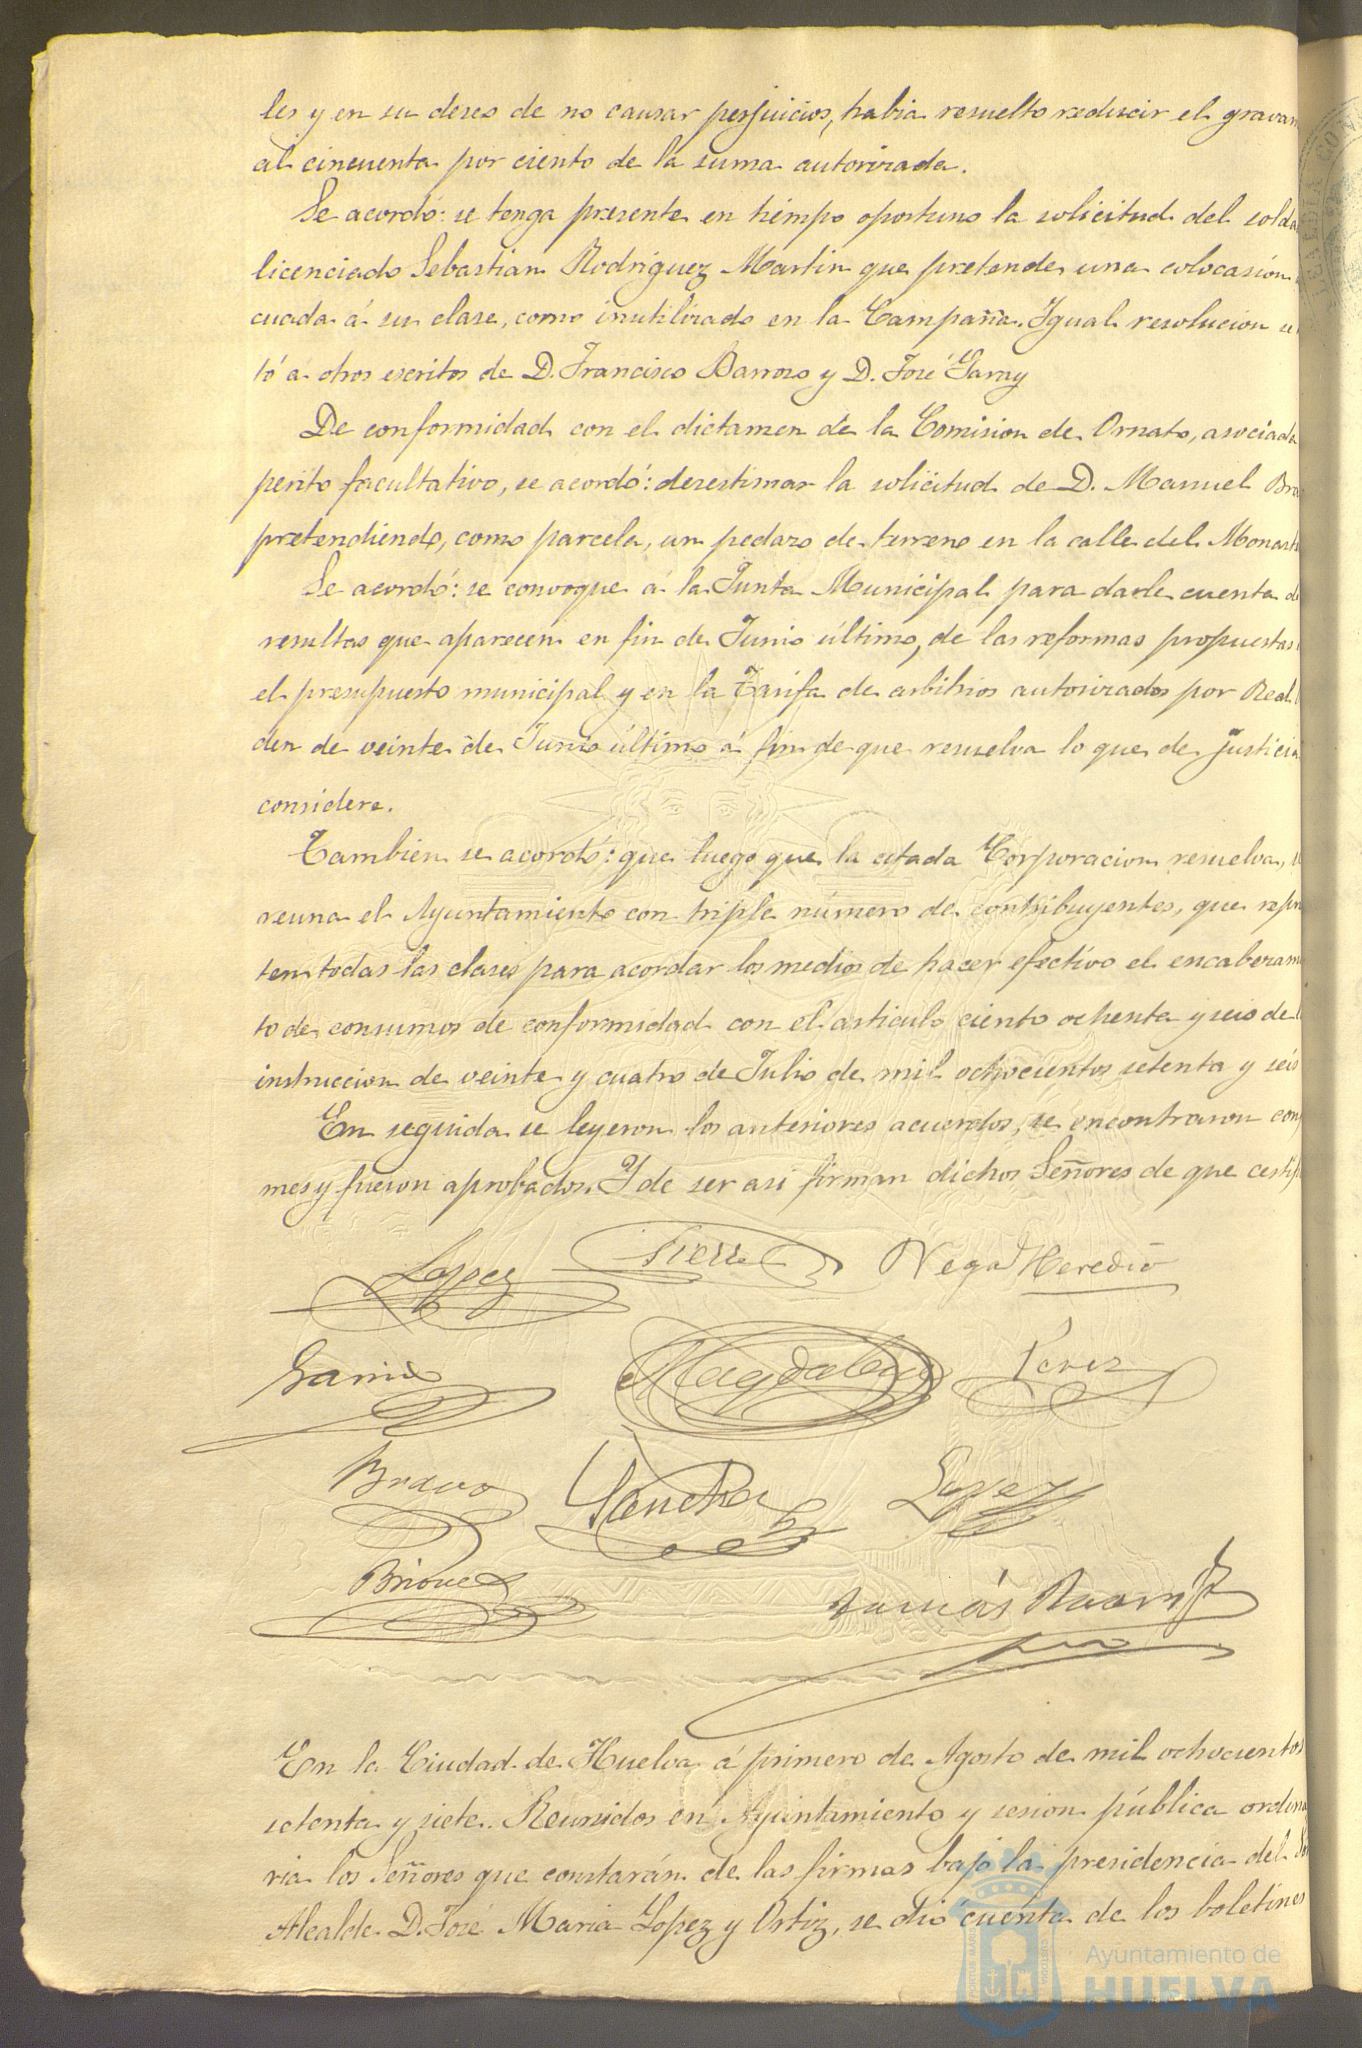 les y en su deseo de no causar perjuicios, habia resuelto reducir el gravam
al cincuenta por ciento de la suma autorizada.
Se acordó: se tenga presente en tiempo oportuno la solicitud del solda
licenciado Sebastian Rodriguez Martin que pretende una colocasión
cuada á su clase, como inutilizado en la Campaña. Igual resolucion se
tó á otros escritos de D. Francisco Barroso y D. José Garay
De conformidad con el dictamen de la Comision de Ornato, asociada
perito facultativo, se acordó: desestimar la solicitud de D. Manuel Bra
pretendiendo, como parcela, un pedazo de terreno en la calle del Monaste
Se acordó: se convoque á la Junta Municipal para darle cuenta de
resultas que aparecen en fin de Junio último, de las reformas propuestas
el presupuesto municipal y en la Tarifa de arbitrios autorizados por Real
den de veinte de Junio último á fin de que resuelva lo que de justicia
considere.
Tambien se acordó: que luego que la citada Corporacion resuelva, se
reuna el Ayuntamiento con triple número de contribuyentes, que repre
ten todas las clases para acordar los medios de hacer efectivo el encabezam
to de consumos de conformidad con el articulo ciento ochenta y seis de l
instruccion de veinte y cuatro de Julio de mil ochocientos setenta y seis
En seguida se leyeron los anteriores acuerdos, se encontraron con
mes y fueron aprobados. Y de ser asi firman dichos Señores de que certifi
Lopez Vega Heredio
Garrido Magdalena Perez
Bravo Sanchez Lopez
Briones Tomás
En la Ciudad de Huelva á primero de Agosto de mil ochocientos
setenta y siete. Reunidos en Ayuntamiento y sesion pública ordina
ria los Señores que constarán de las firmas bajo la presidencia del Sor
Alcalde D. José Maria Lopez y Ortiz, se dió cuenta de los boletines
Ayuntamiento de
HUELVA